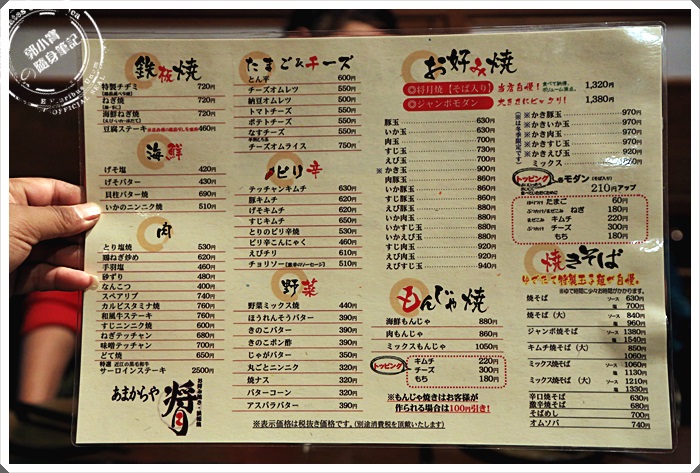 郭小寶
隨身筆記
OFFICIAL SEAL
鉄板焼
特製チヂミ 720円
ねぎ焼 720円
海鮮ねぎ焼 720円
豆腐ステーキ 460円
海鮮
げそ塩 420円
げそバター 430円
貝柱バター焼 690円
いかのニンニク焼 510円
肉
とり塩焼 530円
鶏ねぎ炒め 620円
手羽塩 460円
砂ずり 480円
なんこつ 400円
スペアリブ 740円
カルビスタミナ焼 760円
和風牛ステーキ 760円
すじニンニク焼 600円
ねぎテッチャン 700円
味噌テッチャン 700円
どて焼 650円
特選 近江の黒毛和牛
サーロインステーキ 2500円
あまからや 将月
たまご&チーズ
とん平 600円
チーズオムレツ 550円
納豆オムレツ 550円
トマトチーズ 550円
ポテトチーズ 550円
なすチーズ 550円
チーズオムライス 750円
ピリ辛
テッチャンキムチ 630円
豚キムチ 620円
げそキムチ 620円
すじキムチ 650円
とりのピリ辛焼 550円
ピリ辛こんにゃく 460円
えびチリ 570円
チョリソー 510円
野菜
野菜ミックス焼 440円
ほうれんそうバター 390円
きのこバター 390円
きのこポン酢 390円
じゃがバター 350円
丸ごとニンニク 320円
焼ナス 320円
バターコーン 320円
アスパラバター 390円
※表示価格は税抜き価格です。(別途消費税を頂戴いたします)
お好み焼
◎将月焼【そば入り】 当店自慢! 1,320円
◎ジャンボモダン 大きさにビックリ! 1,380円
豚玉 630円
いか玉 730円
肉玉 700円
すじ玉 730円
えび玉 700円
※かき玉 900円
いか豚玉 860円
肉豚玉 860円
すじ豚玉 860円
えび豚玉 860円
いか肉玉 880円
いかえび玉 880円
すじ肉玉 920円
えび肉玉 920円
すじえび玉 940円
※かき豚玉 970円
※かきいか玉 970円
※かき肉玉 970円
※かきすじ玉 970円
※かきえび玉 970円
ミックス 1050円
トッピング
モダン 210円アップ
たまご 60円
ねぎ 180円
キムチ 220円
チーズ 300円
もち 180円
もんじゃ焼
海鮮もんじゃ 860円
肉もんじゃ 860円
ミックスもんじゃ 1050円
トッピング
キムチ 220円
チーズ 300円
もち 180円
※もんじゃ焼きはお客様が
作られる場合は100円引き!
焼きそば
ゆでたて特製玉子麺が自慢。
※ゆで時間に少々お時間がかかります。
焼そば ソース 630円
塩 700円
焼そば(大) ソース 840円
塩 960円
ジャンボ焼そば ソース 1380円
塩 1540円
キムチ焼そば(大) ソース 850円
1060円
ミックス焼そば ソース 1060円
塩 1130円
ミックス焼そば(大) ソース 1210円
塩 1330円
辛口焼そば ソース 650円
激辛焼そば ソース 680円
そばめし 700円
オムソバ 740円